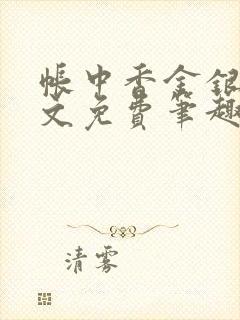 帐中香金银
文免费笔趣
清雾